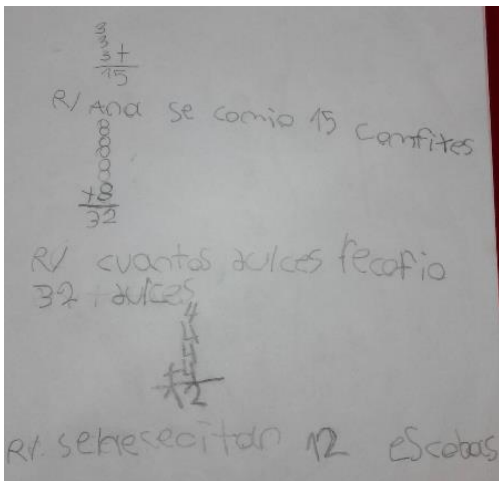 3
3
3
3 +
15
R/ Ana se comio 15 comfites
8
8
8
8
+ 8
32
R/ cuantos dulces recofio
32 dulces
4
4
4
+ 4
12
R/. senesecitan 12 escobas